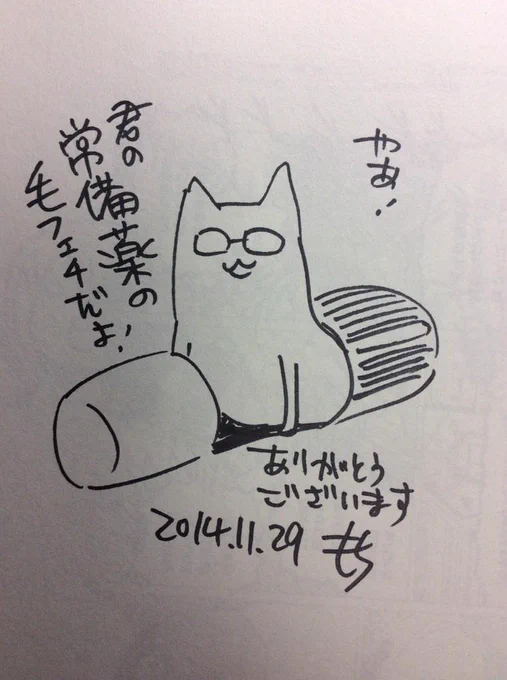 やあ!
君の
常備薬の
モフェチだよ!
ありがとう
ございます
2014.11.29 もち